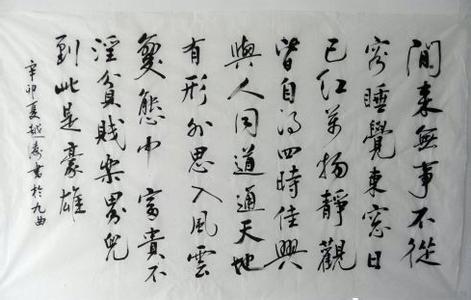 閒來無事不從
容睡覺東窗日
已紅萬物靜觀
皆自得四時佳興
與人同道通天地
有形外思入風雲
變態中富貴不
淫貧賤樂男兒
到此是豪雄
辛卯夏越濤書於九曲